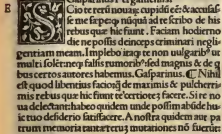 E
Cio te rerū nouarū cupidū eē: & accusas-
se me sæpe q̃ nūquā ad te scribo de his
rebus quæ hic fiunt. Faciam hodierno
die ne possis deinceps criminari negli-
gentiam meam. Impleboiaq̃ te non uulgarib⁹ ut
multi solēt: neq̃ falsis rumorib⁹: sed magnis & de q̃
bus certos autores habemus. Gasparinus. ¶ Nihil
est quod libentius faciā: q̃ de maximis & pulcherri-
mis rebus quæ hic fiunt te certiorē facere. Si te no
ua delectant: habeo quidem unde possim abūde hu-
ic tuo desiderio satisfacere. A nostra quidem aut pa
trum memoria tantæ rerū mutationes nō fuerunt